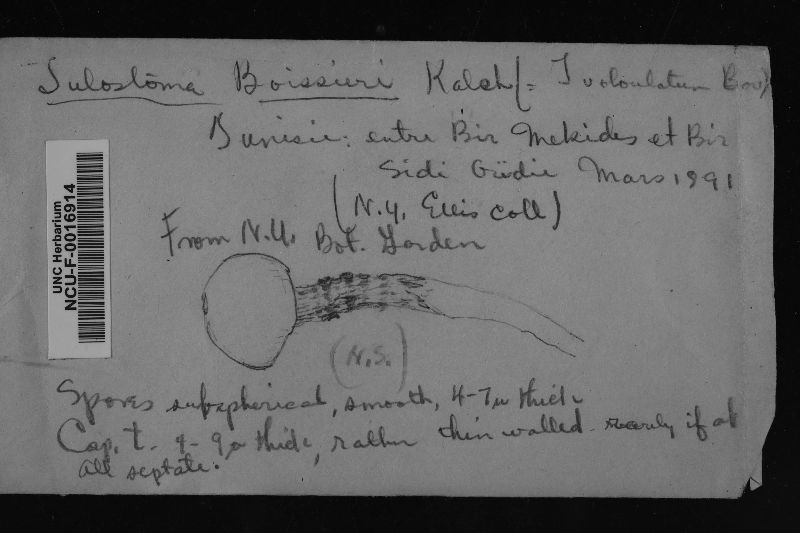 Tulostoma Boissieri Kalch (= T volvulatum Bor)
Tunisie: entre Bir Mekides et Bir
Sidi Mars 1891
(N.Y. Ellis coll)
From N.Y. Bot. Garden
UNC Herbarium
NCU-F-0016914
(N.S.)
Spores subspherical, smooth, 4-7µ thick
Cap. t. 4-9µ thick, rather thin walled rarely if at
all septate.